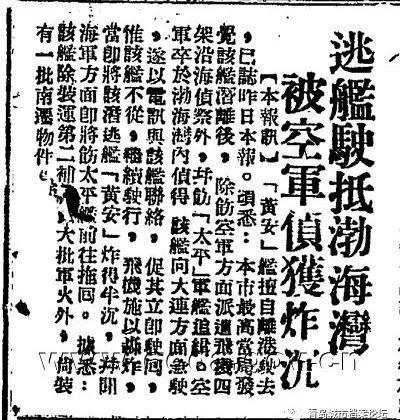 逃艦駛抵渤海灣
被空軍偵獲炸沉
【本報訊】「黃安」艦擅自離港駛去
，已誌昨日本報。頃悉：本市最高當局發
覺該艦潛離後，除飭空軍方面派遣飛機四
架沿海偵察外，幷飭「太平」軍艦追緝。空
軍卒於渤海灣內偵得，該艦向大連方面急駛
，遂以電訊與該艦聯絡，促其立卽駛回，
惟該艦不從，繼續駛行，飛機施以轟炸，
當卽將該潛逃艦「黃安」炸得半沉，幷聞
海軍方面卽將飭太平艦前往拖回。據悉：
該艦除裝運第二補大批軍火外，尙裝
有一批南運物件。
青岛城市档案论坛